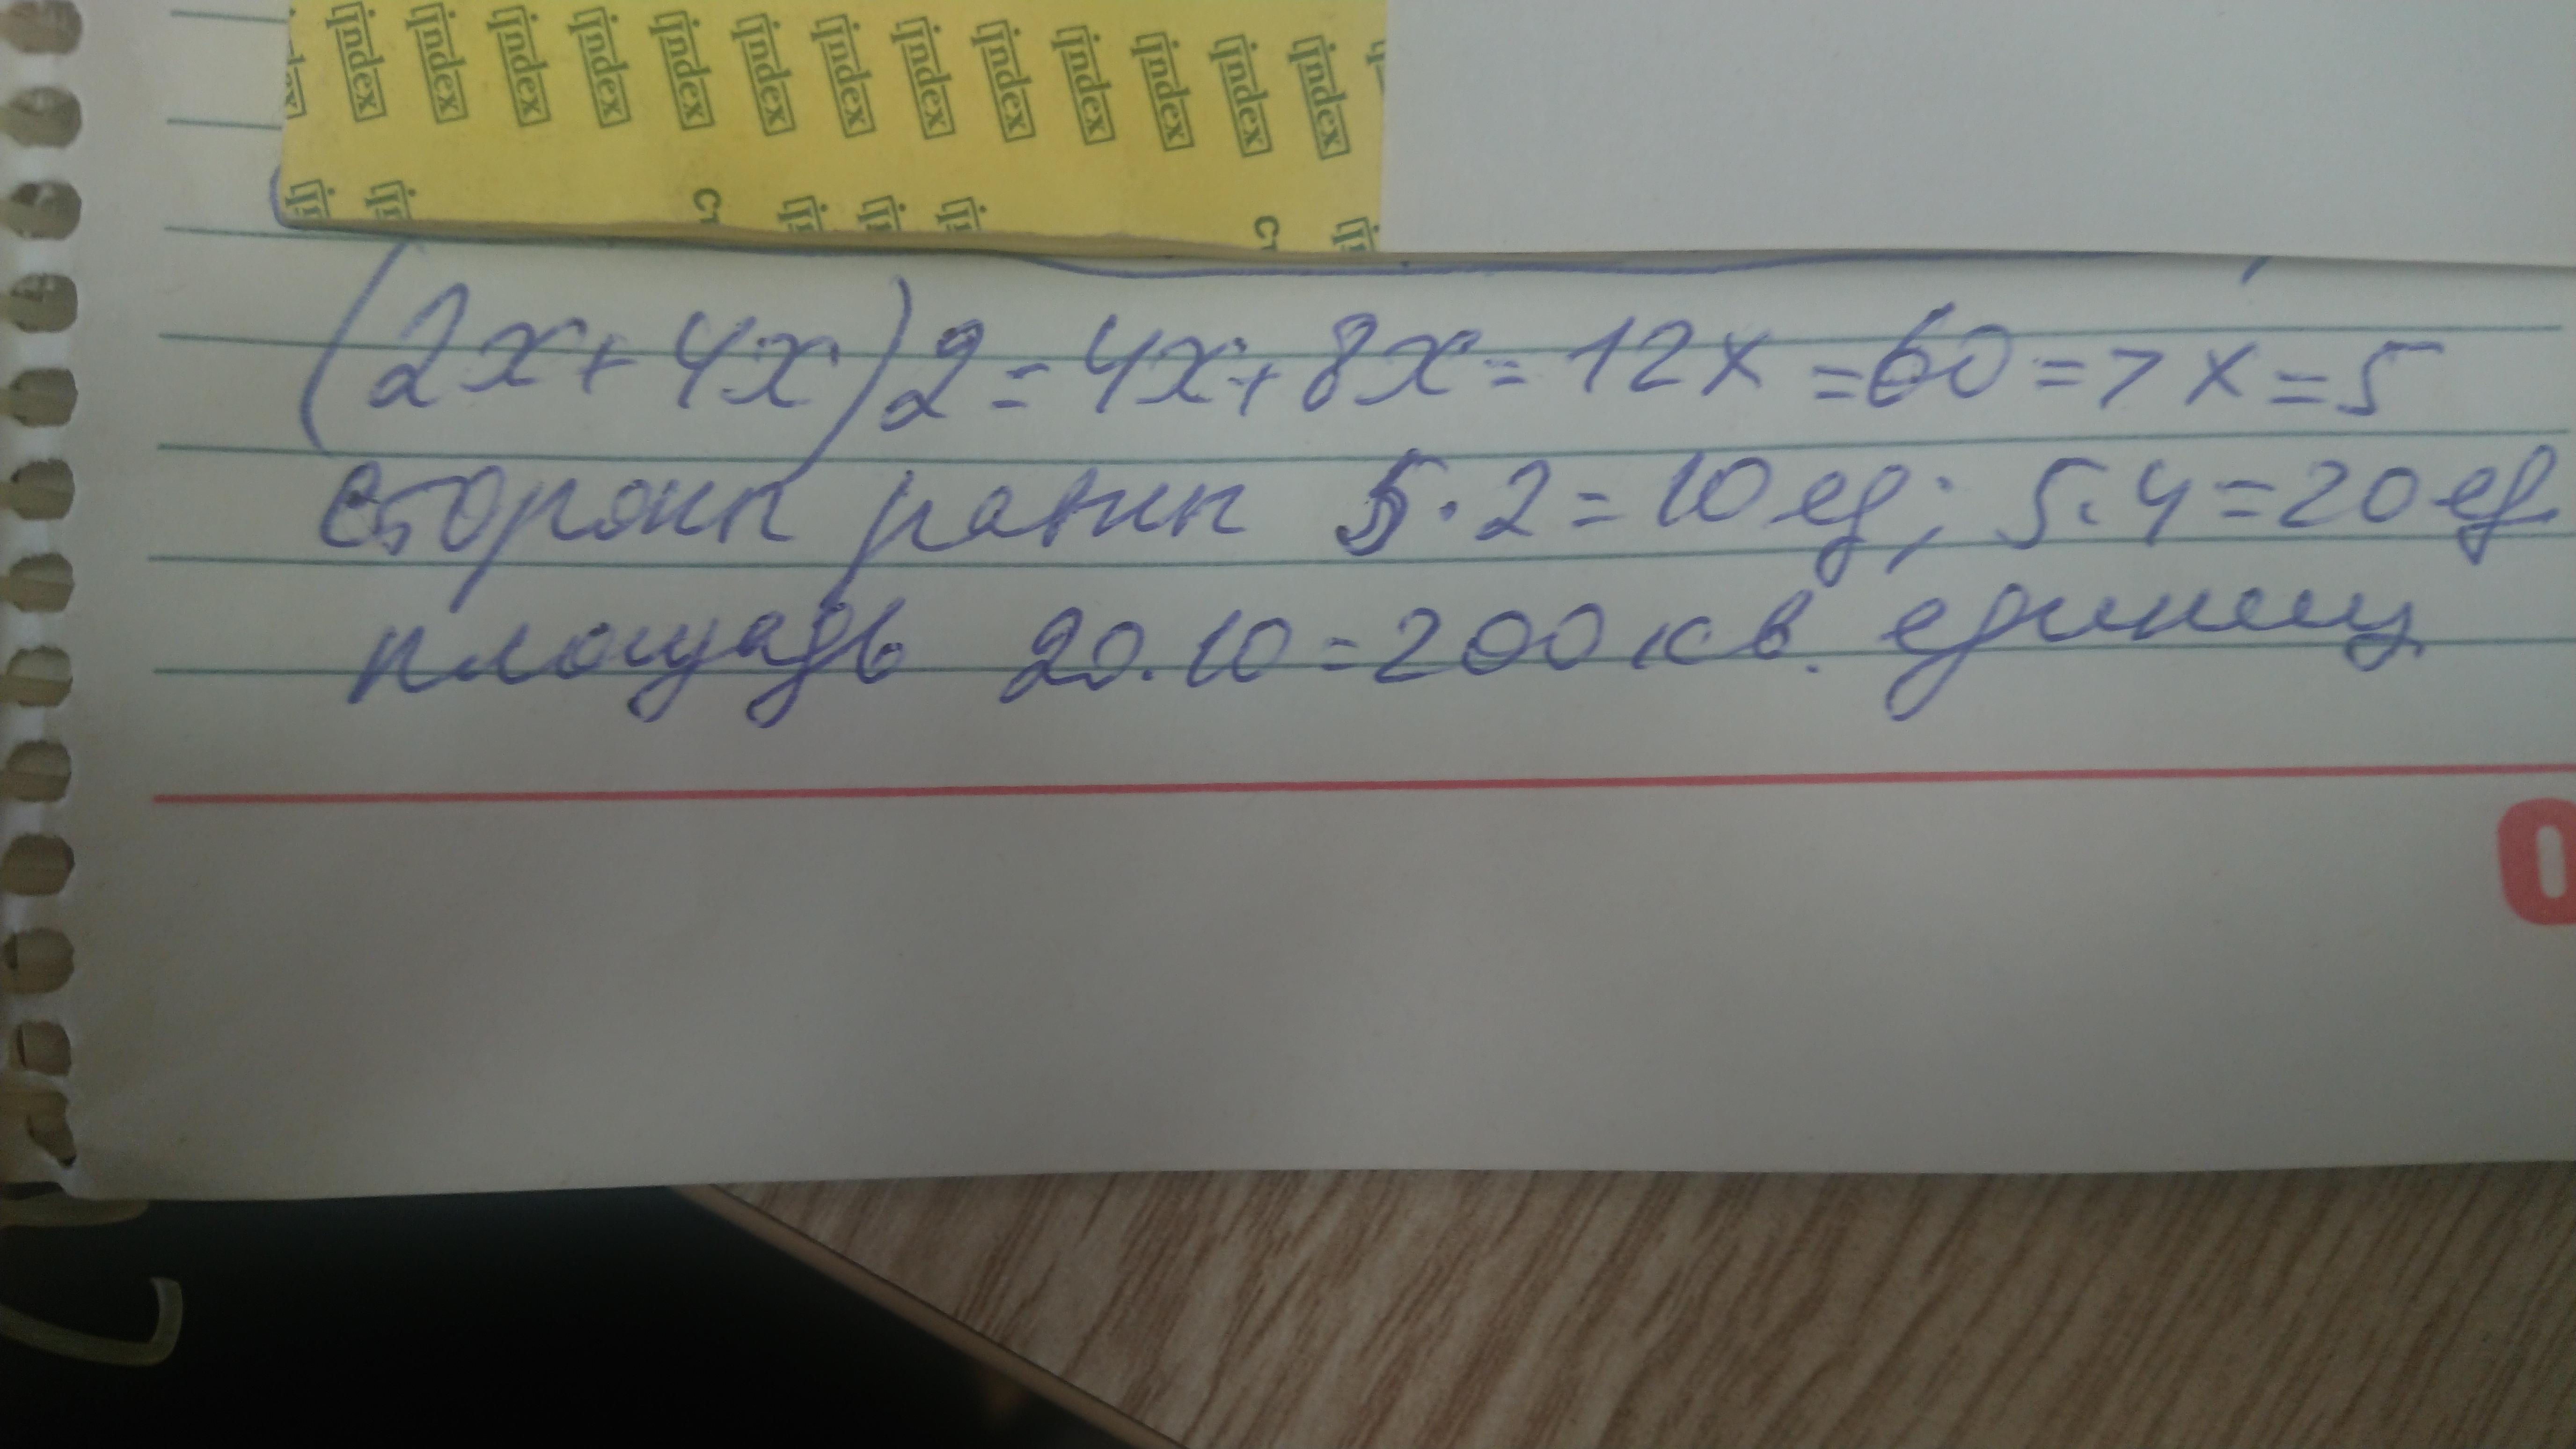 index index index index index index index index index index index index index
Ст Ст
(2x+4x)2=4x+8x=12x=60=>x=5
стороны равны 5·2=10ед; 5·4=20ед.
площадь 20·10=200 кв. единиц.
0